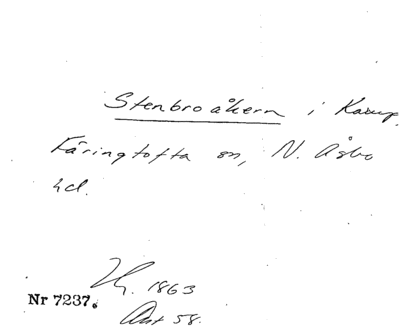 Stenbroåkern i Karup,
Färingtofta sn, N. Åsbo
hd.
1863
Nr 7237.
Akt 58.